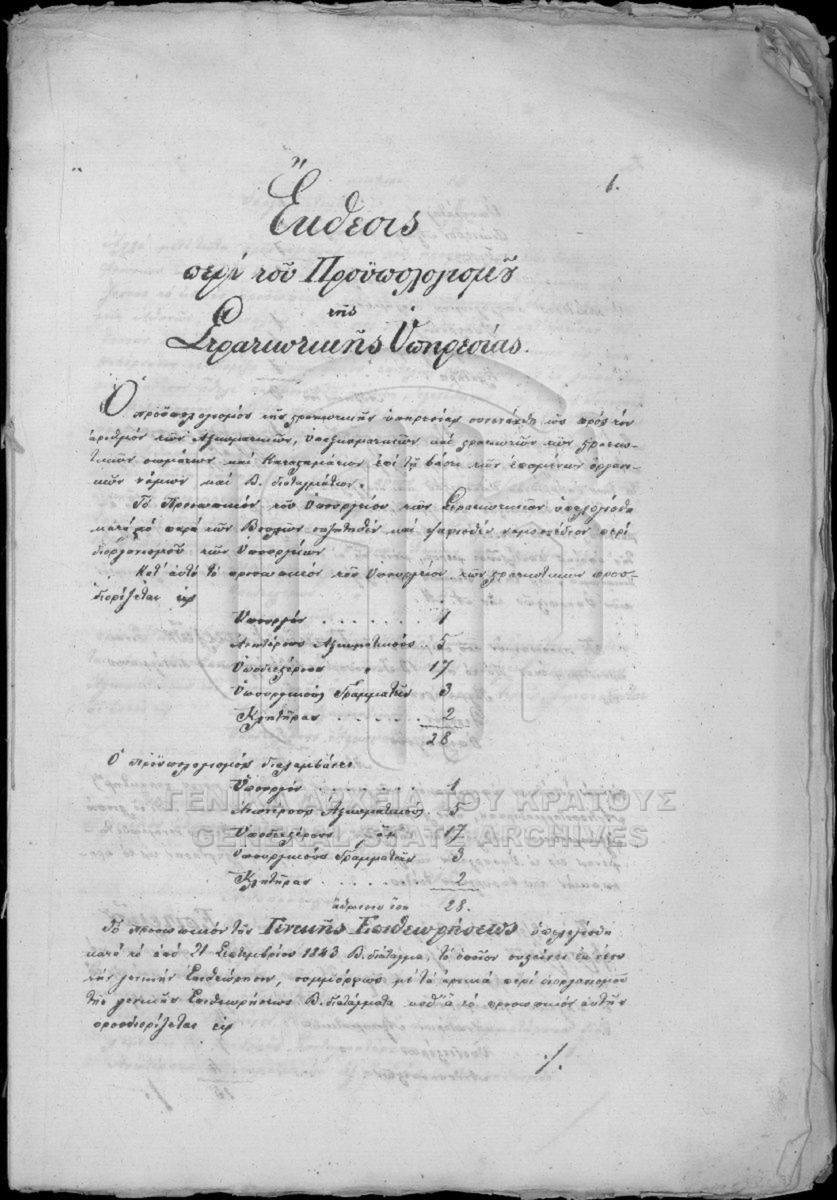 1.
Ἔκθεσις
περὶ τοῦ Προϋπολογισμοῦ
τῆς
Στρατιωτικῆς Ὑπηρεσίας.
Ὁ προϋπολογισμὸς τῆς στρατιωτικῆς ὑπηρεσίας συνετάχθη ὡς πρὸς τὸν
ἀριθμὸν τῶν Ἀξιωματικῶν, Ὑπαξιωματικῶν καὶ στρατιωτῶν τῶν στρατιω-
τικῶν σωμάτων καὶ Καταστημάτων ἐπὶ τῇ βάσει τῶν ἑπομένων ὀργανι-
κῶν νόμων καὶ Β. διαταγμάτων.
Τὸ Προσωπικὸν τοῦ Ὑπουργείου τῶν Στρατιωτικῶν ὑπελογίσθη
κατὰ τὸ παρὰ τῶν Βουλῶν συζητηθὲν καὶ ψηφισθὲν νομοσχέδιον περὶ
διοργανισμοῦ τῶν Ὑπουργείων
Κατ' αὐτὸ τὸ προσωπικὸν τοῦ Ὑπουργείου τῶν στρατιωτικῶν προσ-
διορίζεται εἰς
Ὑπουργὸν . . . . . . 1
Ἀνωτέρους Ἀξιωματικοὺς 5
Ὑποδεεστέρους " 17
Ὑπουργικοὺς Γραμματεῖς 3
Κλητῆρας . . . . . 2
28
Ὁ προϋπολογισμὸς διαλαμβάνει
Ὑπουργὸν 1
Ἀνωτέρους Ἀξιωματικοὺς 5
Ὑποδεεστέρους 17
Ὑπουργικοὺς Γραμματεῖς 3
Κλητῆρας . . . . . 2
ἄθροισμα ἴσον 28.
Τὸ προσωπικὸν τῆς Γενικῆς Ἐπιθεωρήσεως ὑπελογίσθη
κατὰ τὸ ἀπὸ 21 Σεπτεμβρίου 1843 Β. διάταγμα, τὸ ὁποῖον
τὴν γενικὴν Ἐπιθεώρησιν, συμμόρφως μὲ τὰ ἀρχικὰ περὶ διοργανισμοῦ
τῆς γενικῆς Ἐπιθεωρήσεως Β. διατάγματα καθ' ἃ τὸ προσωπικὸν αὐτῆς
προσδιορίζεται εἰς
./.
ΓΕΝΙΚΑ ΑΡΧΕΙΑ ΤΟΥ ΚΡΑΤΟΥΣ
GENERAL STATE ARCHIVES